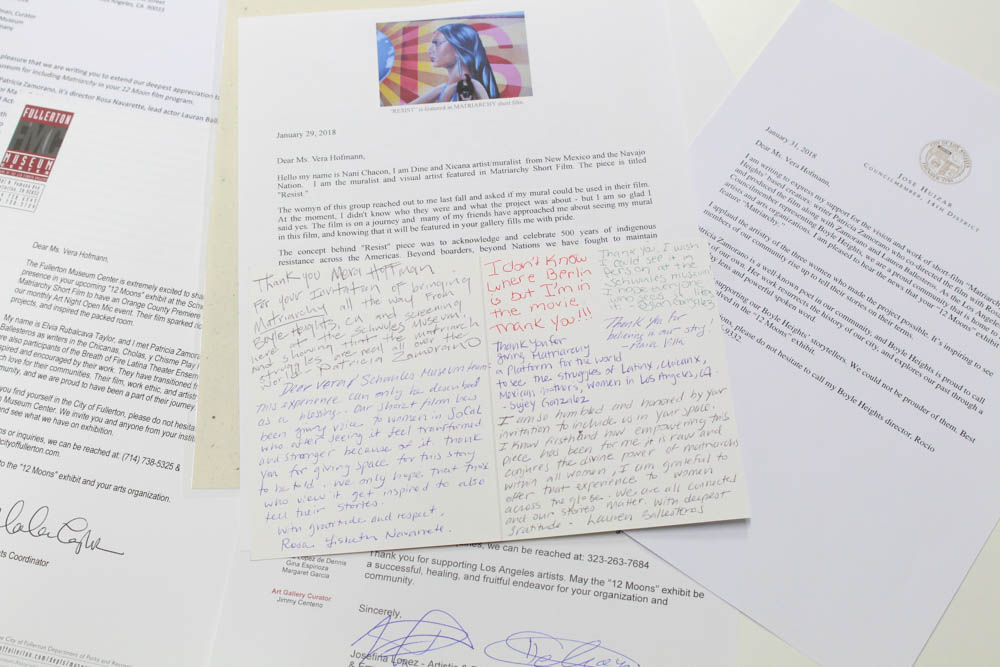 Museum
pleasure that we are writing you to extend our deepest appreciation to
for including Matriarchy in your 12 Moon film program.
Patricia Zamorano, it's director Rosa Navarette, lead actor Lauran Ball
FULLERTON
MUSEUM
CENTER
Dear Ms. Vera Hofmann,
The Fullerton Museum Center is extremely excited to sha
presence in your upcoming "12 Moons" exhibit at the Schwules
Matriarchy Short Film to have an Orange County Premiere
our monthly Art Night Open Mic event. Their film sparked
projects, and inspired the packed room.
My name is Elvia Rubalcava Taylor, and I met Patricia Zamora
Ballesteros as writers in the Chicanas, Cholas, y Chisme Play
are also participants of the Breath of Fire Latina Theater Ensem
inspired and encouraged by their work. They have transitioned fr
ch love for their communities. Their film, work ethic, and artistic
mmunity, and we are proud to have been a part of their journey.
you find yourself in the City of Fullerton, please do not hesita
Museum Center. We invite you and anyone from your institu
and see what we have on exhibition.
ns or inquiries, we can be reached at: (714) 738-5325 &
cityoffullerton.com
to the "12 Moons" exhibit and your arts organization.
ts Coordinator
he City of Fullerton Department of Parks and Recrea
"RESIST" is featured in MATRIARCHY short film.
January 29, 2018
Dear Ms. Vera Hofmann,
Hello my name is Nani Chacon, I am Dine and Xicana artist/muralist from New Mexico and the Navajo
Nation. I am the muralist and visual artist featured in Matriarchy Short Film. The piece is titled
"Resist."
The womyn of this group reached out to me last fall and asked if my mural could be used in their film.
At the moment, I didn't know who they were and what the project was about - but I am so glad I
said yes. The film is on a journey and many of my friends have approached me about seeing my mural
in this film, and knowing that it will be featured in your gallery fills me with pride.
The concept behind "Resist" piece was to acknowledge and celebrate 500 years of indigenous
resistance across the Americas. Beyond borders, beyond Nations we have fought to maintain
Thank you Vera Hoffman
For your Invitation of bringing
Matriarchy all the way From
Boyle Heights, CA and screening
here at the Schwules Museum,
and showing that the matriarch
struggles are real all over the
world. Patricia Zamorano
I don't know
where Berlin
is but I'm in
the movie
Thank you!!!
Thank you, I wish
I could see it in
person at the
Schwules museum
Thank you for
believing in our story!
Thank you for
giving Matriarchy
a platform for the world
to see the struggles of Latinx, Chicanx,
Mexican mothers, women in Los Angeles, CA.
- Sujey Gonzalez
Dear Vera & Schwules Museum team
this experience can only be described
as a blessing. Our short film has
been giving voice to women in SoCal
who after seeing it feel transformed
and stronger because of it. Thank
you for giving space for this story
to be told. We only hope that those
who view it get inspired to also
tell their stories.
With gratitude and respect,
Rosa Lisbeth Navarrete.
I am so humbled and honored by your
invitation to include us in your space.
I know firsthand how empowering this
piece has been for me it is raw and
conjures the divine power of matriarchs
within all women, I am grateful to
offer that experience to women
across the globe. We are all connected
and our stories matter. With deepest
gratitude. Lauren Ballesteros
January 31, 2018
JOSE HUIZAR
COUNCILMEMBER, 14TH DISTRICT
Dear Ms. Vera Hofmann,
I am writing to express my support for the vision and work of short-film "Matriarchy,"
Heights' based creators: writer Patricia Zamorano
and produced the film along with Zamorano and Lauren Ballesteros.
Councilmember representing Boyle Heights, we are a proud community
artists and arts organizations. I am pleased to hear the news that your "12 Moons" exhibit
feature "Matriarchy."
I applaud the artistry of the three women who made the project possible. It's inspiring to see
members of our community rise up to tell their stories on their terms.
Patricia Zamorano is a well-known poet in our community, and Boyle Heights is proud to call
her our own. Her work constructs the history of our city, and explores our past through a
lens and powerful spoken word.
supporting our Boyle Heights' storytellers. We could not be prouder of them. Best
involved in the "12 Moons" exhibit.
ons, please do not hesitate to call my Boyle Heights director, Rocio
-9332
we can be reached at: 323-263-7684
Thank you for supporting Los Angeles artists. May the "12 Moons" exhibit be
a successful, healing, and fruitful endeavor for your organization and
community.
Lopez de Dennis
Gina Espinoza
Margaret Garcia
Art Gallery Curator
Jimmy Centeno
Sincerely,
Josefina Lopez - Artistic